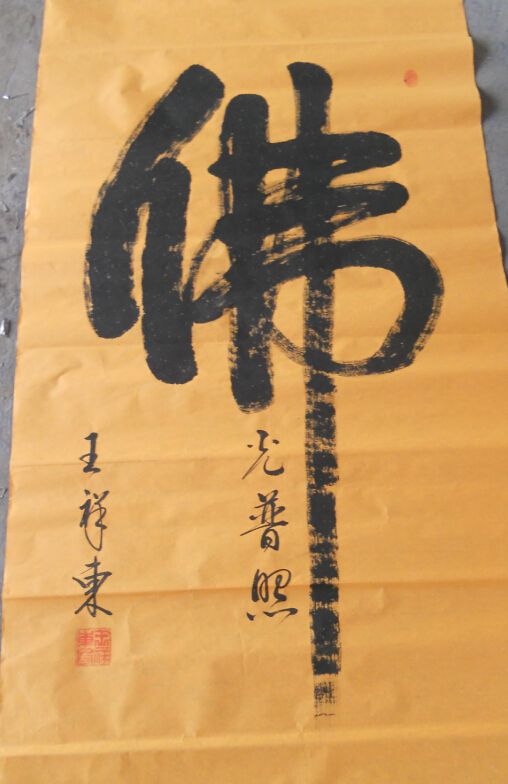 佛
光普照
王祥東